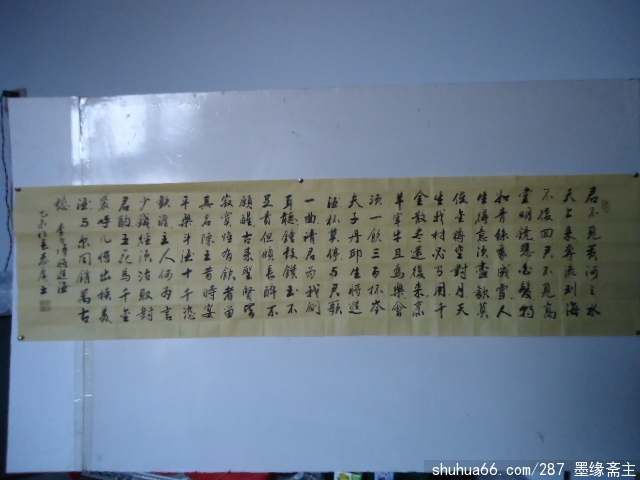 君不見黃河之水
天上来奔流到海
不復回君不見高
堂明鏡悲白髮朝
如青絲暮成雪人
生得意須盡歡莫
使金樽空對月天
生我材必有用千
金散盡還復来烹
羊宰牛且為樂會
須一飲三百杯岑
夫子丹邱生將進
酒杯莫停與君歌
一曲請君為我側
耳聽鐘鼓饌玉不
足貴但願長醉不
願醒古来聖賢皆
寂寞惟有飲者留
其名陳王昔時宴
平樂斗酒十千恣
歡謔主人何為言
少錢徑須沽取對
君酌五花馬千金
裘呼兒將出換美
酒与尔同銷萬古
愁 李白詩將進酒
shuhua66.com/287 墨缘斋主